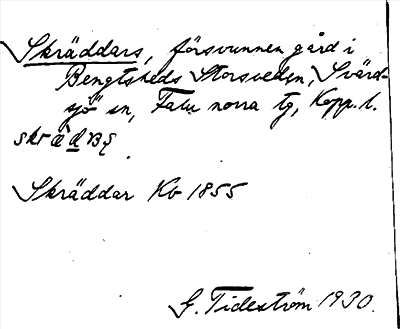 Skräddars, försvunnen gård i
Bengtsheds Storsveden, Svärd-
sjö sn, Falu norra tg, Kopp. l.
Skräddar Kb 1855
G. Tideström 1930.